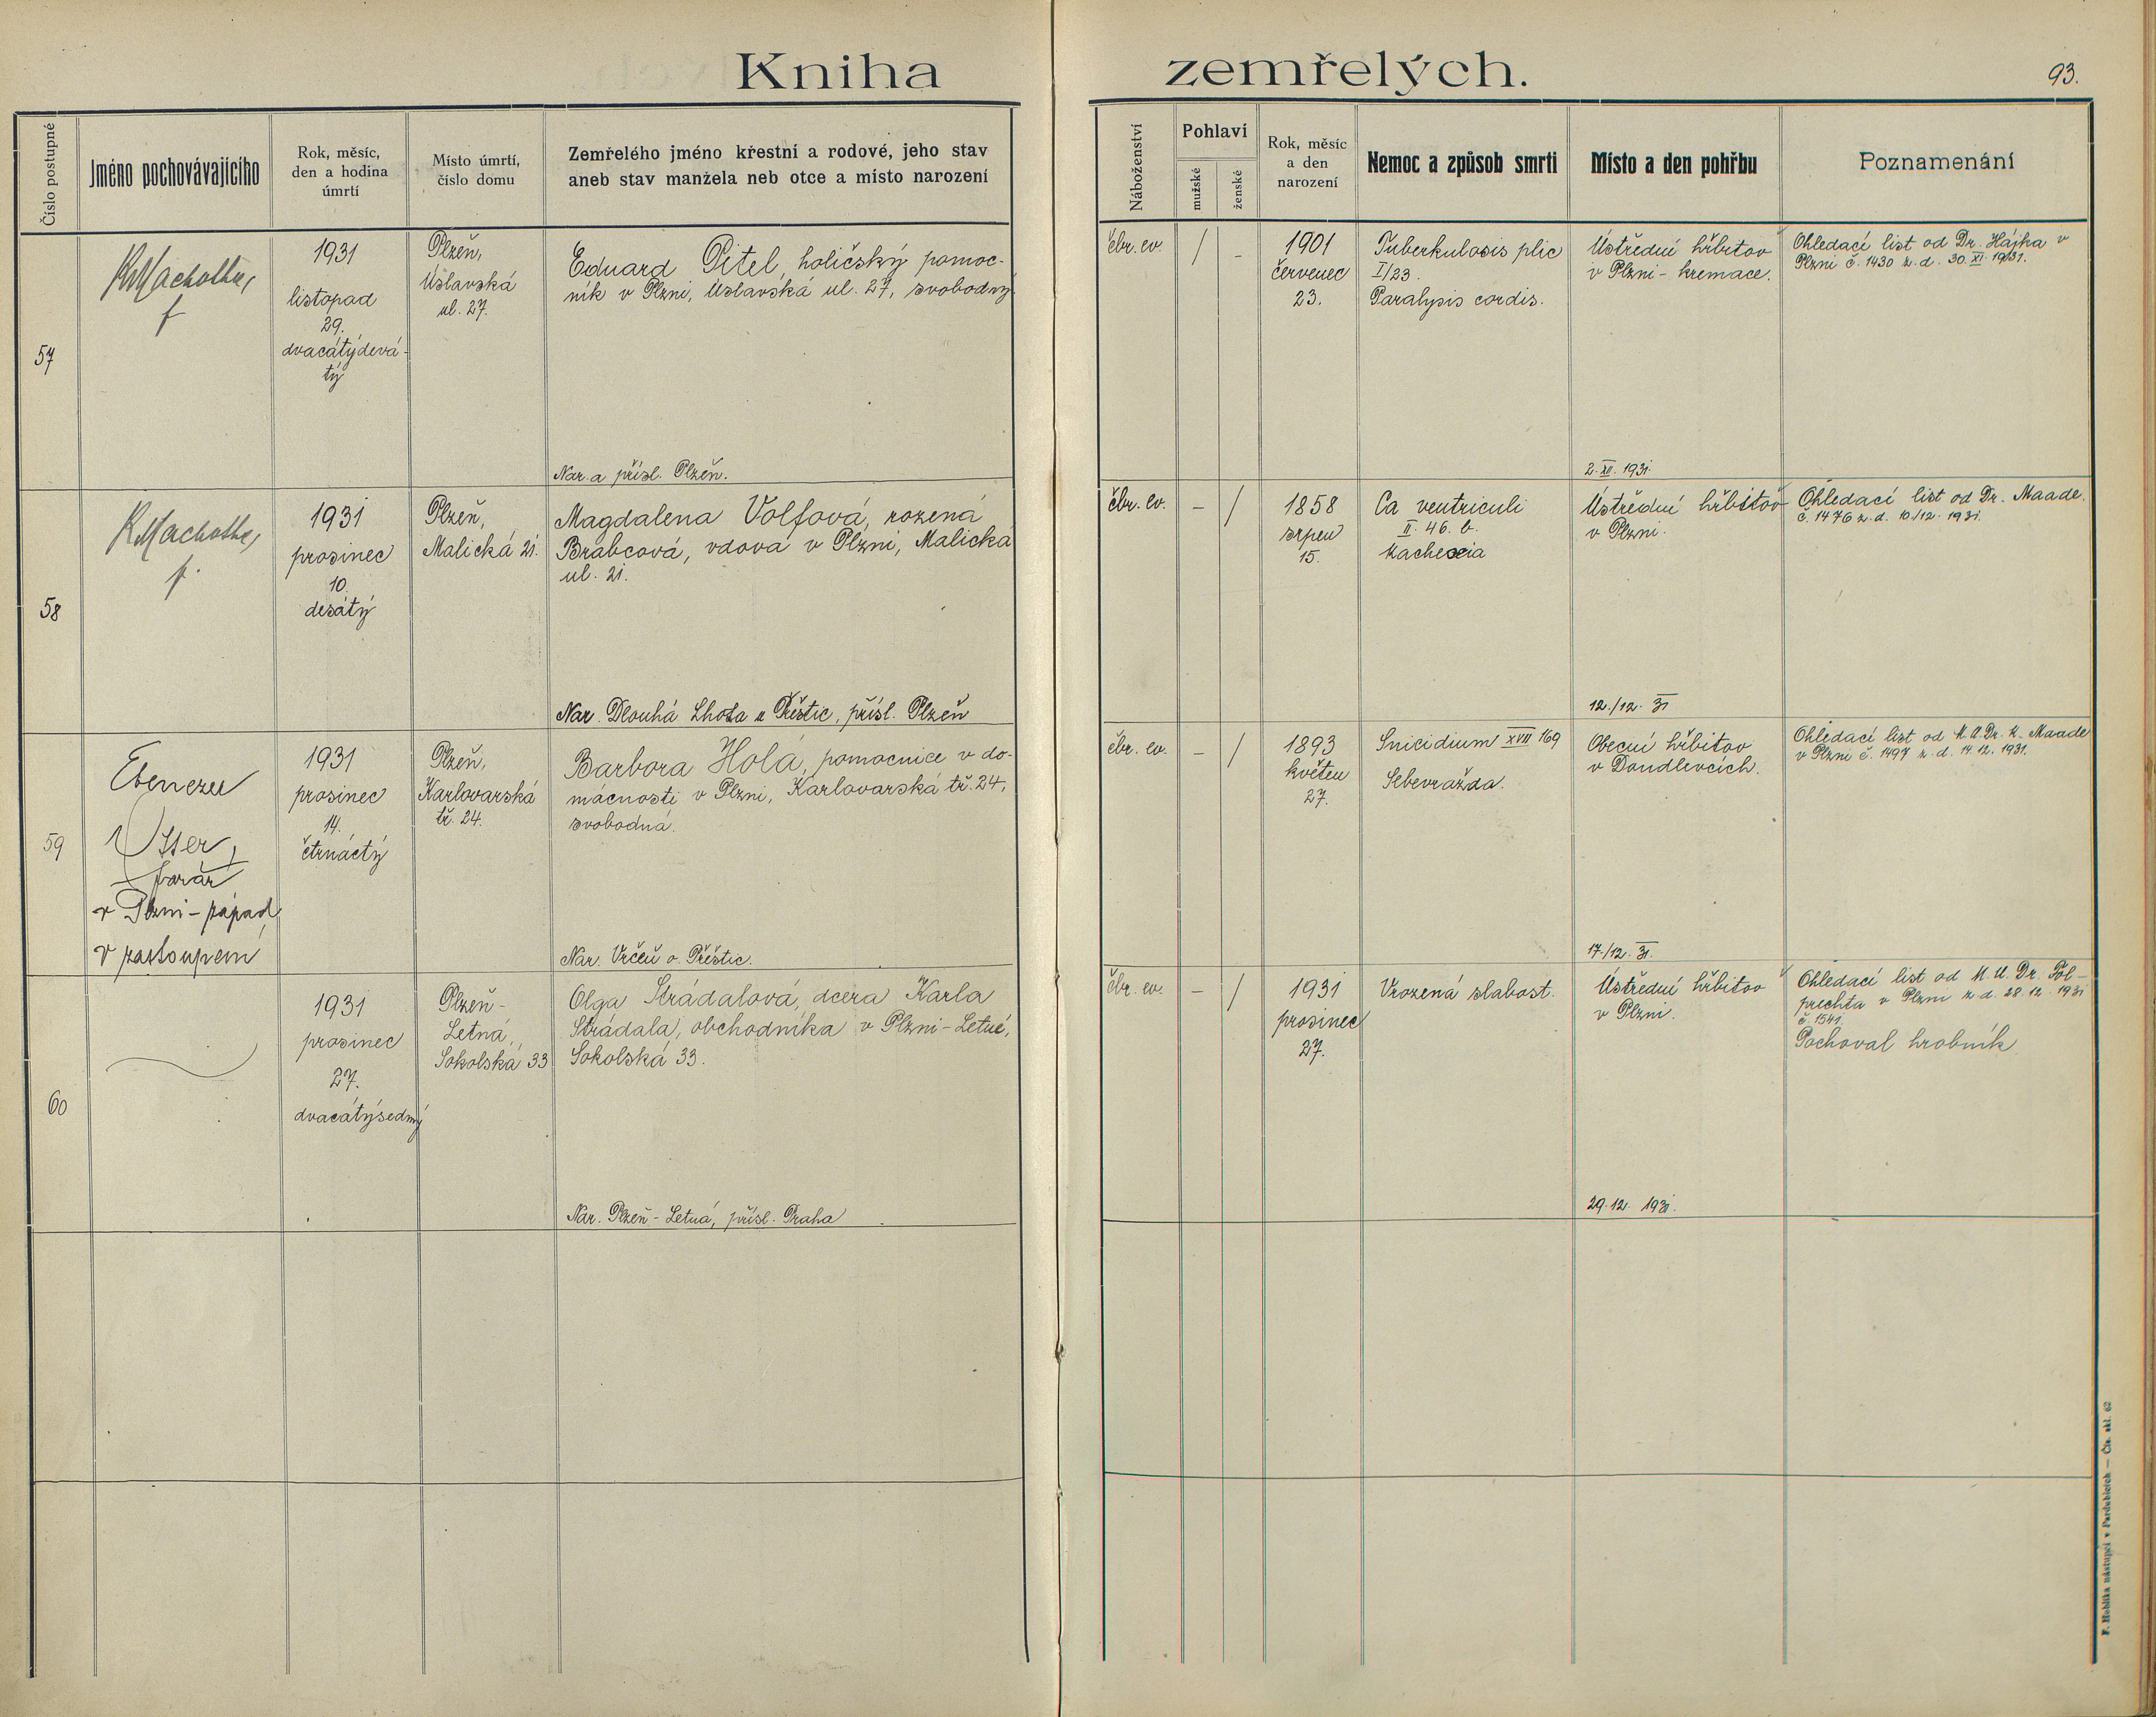 Kniha zemřelých.
93.
Číslo postupné
Jméno pochovávajícího
Rok, měsíc,
den a hodina
úmrtí
Místo úmrtí,
číslo domu
Zemřelého jméno křestní a rodové, jeho stav
aneb stav manžela neb otce a místo narození
Náboženství
Pohlaví
mužské
ženské
Rok, měsíc
a den
narození
Nemoc a způsob smrti
Místo a den pohřbu
Poznamenání
57
KMachotka,
f
1931
listopad
29.
dvacátýdevá-
tý
Plzeň,
Úslavská
ul. 27.
Eduard Pitel, holičský pomoc-
ník v Plzni, Úslavská ul. 27, svobodný
Nar. a přísl. Plzeň.
čbr. ev.
/
-
1901
červenec
23.
Tuberkulosis plic
I/23.
Paralysis cordis.
Ústřední hřbitov
v Plzni - kremace.
2. XII. 1931.
Ohledací list od Dr. Hájka v
Plzni č. 1430 z. d. 30. XI. 1931.
58
KMachotka,
f.
1931
prosinec
10.
desátý
Plzeň,
Malická 21.
Magdalena Volfová, rozená
Brabcová, vdova v Plzni, Malická
ul. 21.
Nar. Dlouhá Lhota u Přeštic, přísl. Plzeň
čbr. ev.
-
/
1858
srpen
15.
Ca ventriculi
II. 46. b.
Kachexia
Ústřední hřbitov
v Plzni.
12./12. 31
Ohledací list od Dr. Maade.
č. 1476 z. d. 10./12. 1931.
59
Ebenezer
Otter,
farář
v Plzni-západ,
v zastoupení
1931
prosinec
14.
čtrnáctý
Plzeň,
Karlovarská
tř. 24.
Barbora Holá, pomocnice v do-
mácnosti v Plzni, Karlovarská tř. 24,
svobodná.
Nar. Vrčeň o. Přeštic.
čbr. ev.
-
/
1893
květen
27.
Suicidium XVII 169
Sebevražda.
Obecní hřbitov
v Doudlevcích.
17./12. 31.
Ohledací list od M.U.Dr. K. Maade
v Plzni č. 1497 z. d. 14. 12. 1931.
60
1931
prosinec
27.
dvacátýsedmý
Plzeň-
Letná,
Sokolská 33
Olga Strádalová, dcera Karla
Strádala, obchodníka v Plzni-Letné,
Sokolská 33.
Nar. Plzeň-Letná, přísl. Praha
čbr. ev.
-
/
1931
prosinec
27.
Vrozená slabost.
Ústřední hřbitov
v Plzni.
29. 12. 1931.
Ohledací list od M.U.Dr. Föl-
prechta v Plzni z. d. 28. 12. 1931
č. 1541.
Pochoval hrobník
F. Hoblíka nástupci v Pardubicích — Čís. skl. 62